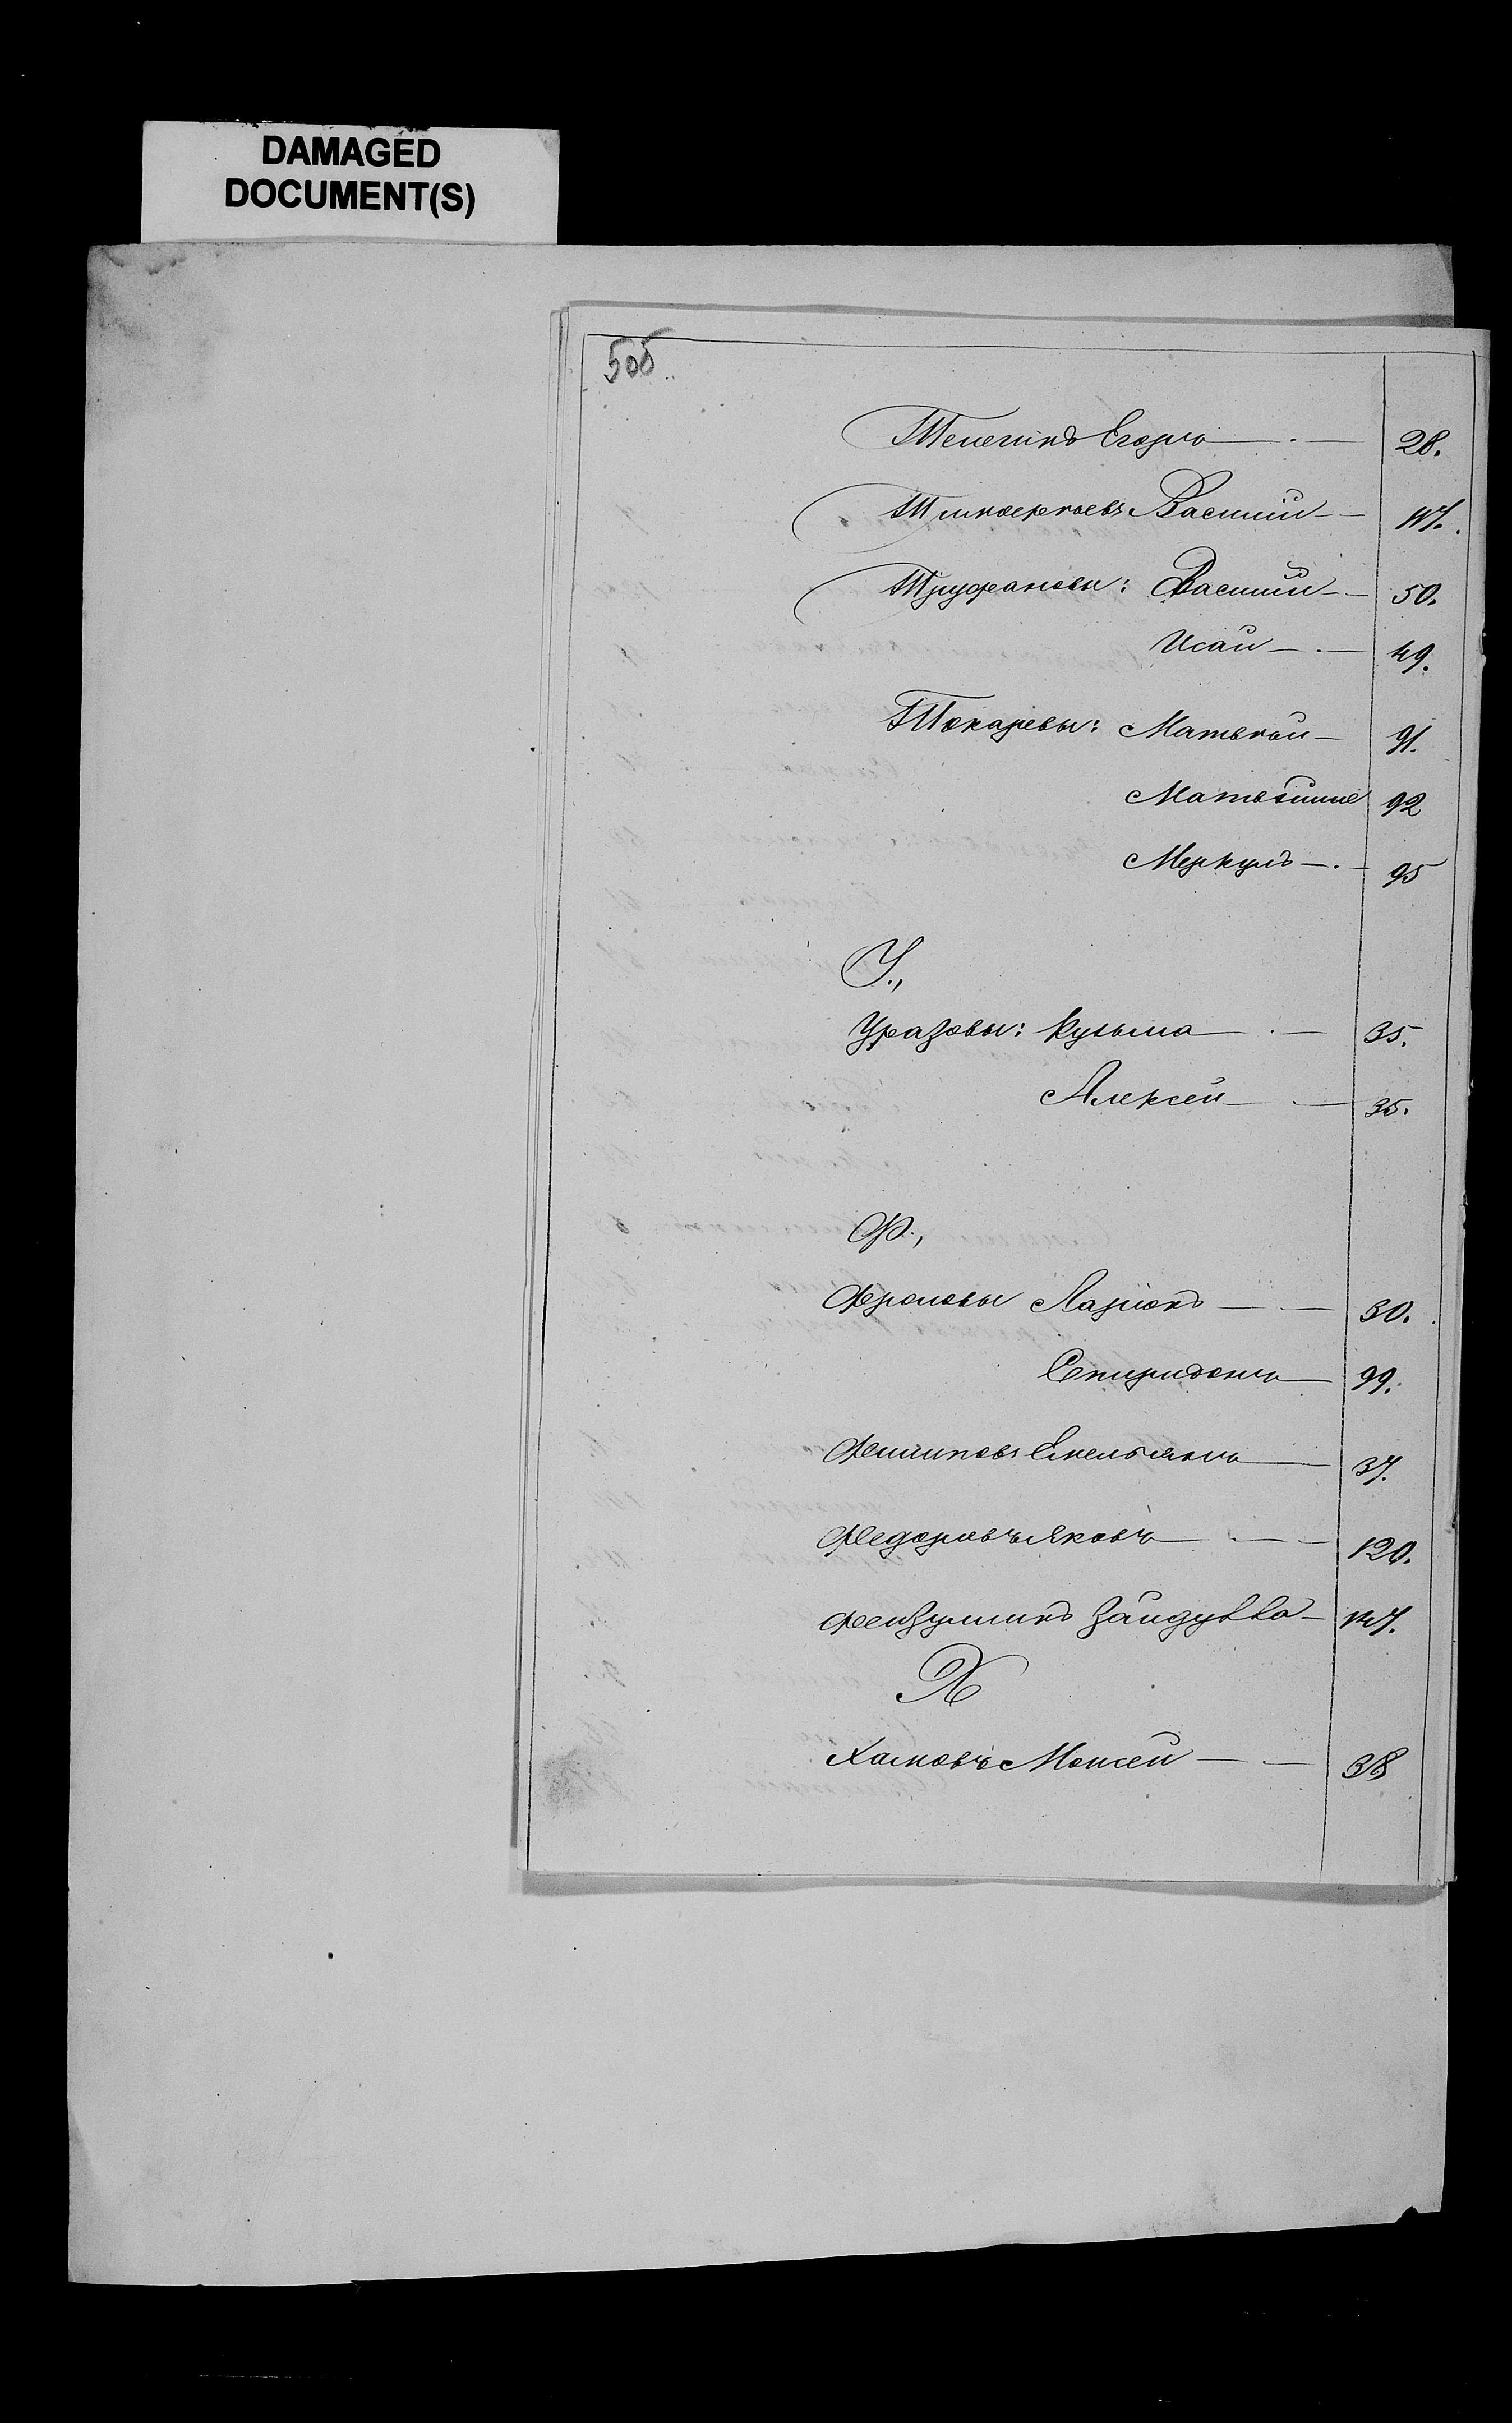 DAMAGED
DOCUMENT(S)
505
Телегинъ Егоръ 28.
Тимофеевъ Василій 117.
Труфановы: Василій 50.
Исай 49.
Токаревы: Матвѣй 91.
Матвѣй 92
Меркулъ 95
У.,
Уразовы: Кузьма 35.
Алексей 35.
Ф.,
Фроловы Ларіонъ 30.
Спиридонъ 99.
Филиповъ Емельянъ 37.
Федоровъ Яковъ 120.
Фейзулинъ 147.
Х
Хамовъ Моисей 38